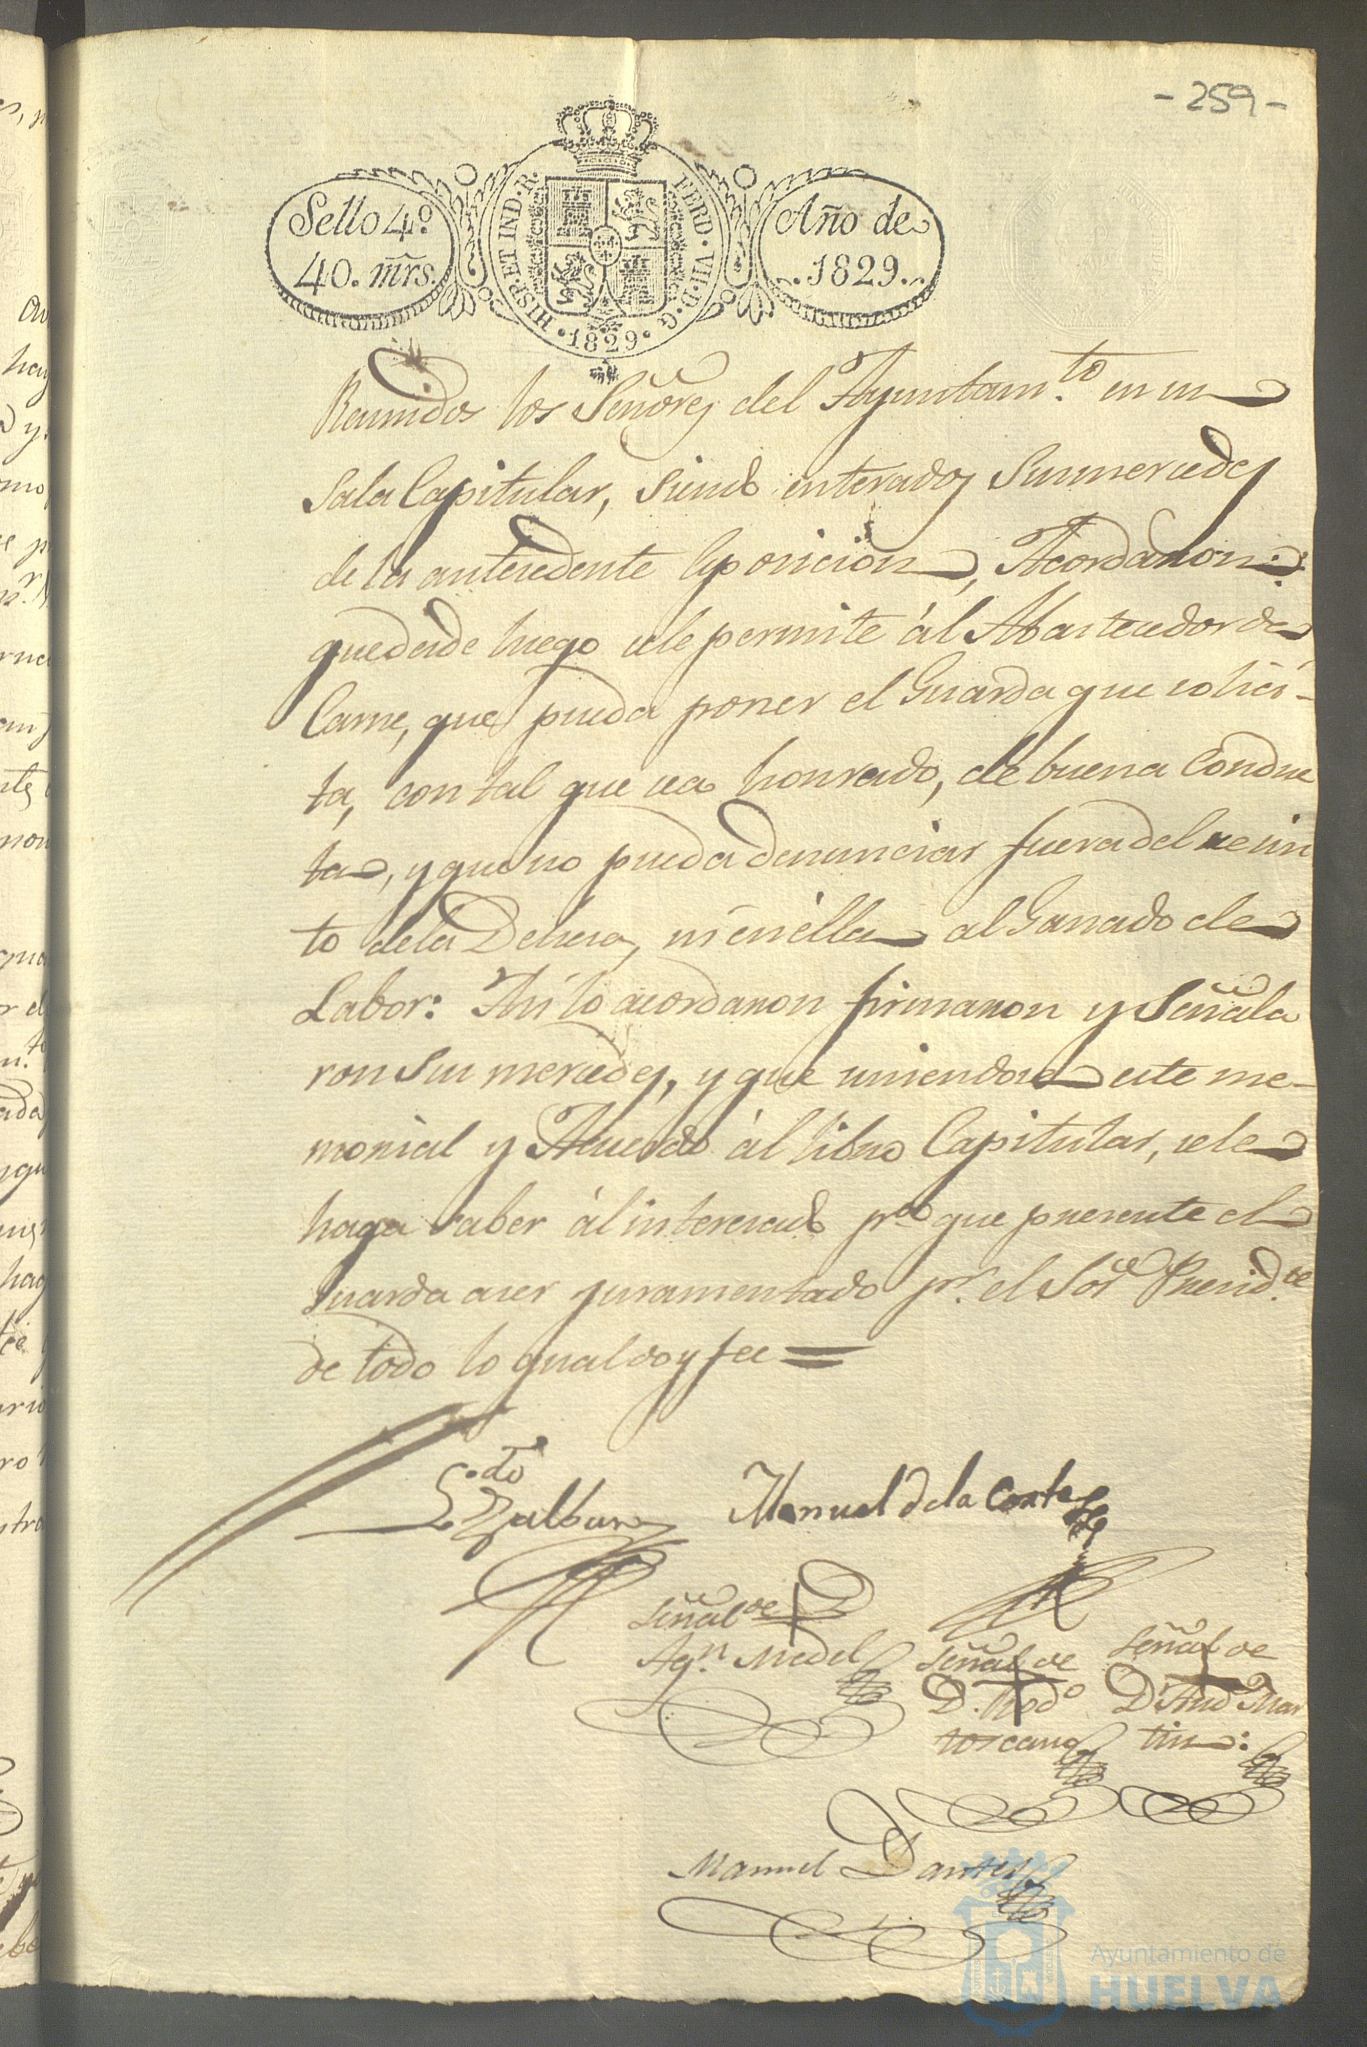 - 259 -
Sello 4.º
40. mrs.
HISP. ET IND. R.
FERD. VII. D. G.
1829
Año de
1829.
Reunidos los Señores del Ayuntam.to en su
Sala Capitular, siendo enterados Sus mercedes
de la antecedente Esposicion, Acordaron:
que desde luego se le permite ál Abastecedor de
Carne, que pueda poner el Guarda que solici-
ta, con tal que sea honrado, de buena Conduc
ta, y que no pueda denunciar fuera del recin
to de la Dehesa, ni en ella al Ganado de
Labor: Asi lo acordaron firmaron y Señala
ron Sus mercedes, y que uniendose este me-
morial y Acuerdo ál libro Capitular, se le
haga saber ál interesado p.a que presente el
Guarda a ser juramentado p.r el Sor Presid.te
de todo lo qual doy fee =
L.do
Manuel de la Corte
Señal de
Ag.n Medel
Señal de
D. Rod.o
toscano
Señal de
D. And.s Mar
tin:
Manuel
Ayuntamiento de
HUELVA